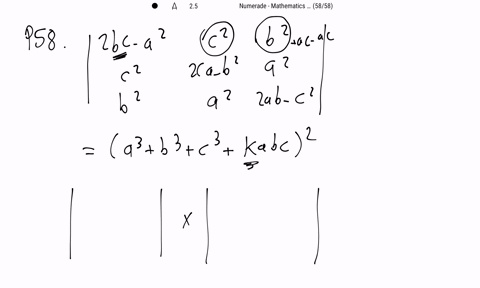 2.5 Numerade - Mathematics ... (58/58)
P58. | 2bc-a² c² b²+ac-ac |
| c² 2ca-b² a² |
| b² a² 2ab-c² |
= (a³+b³+c³+kabc)²
| | × | |